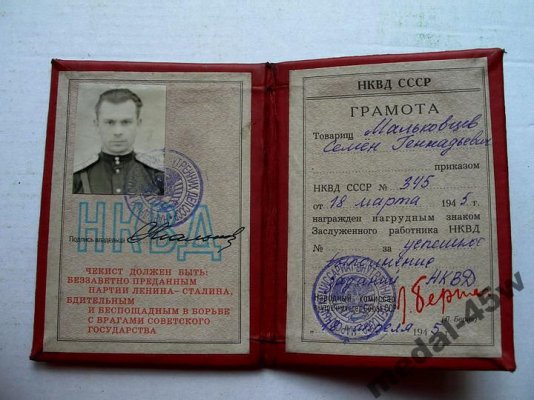 НКВД
Подпись владельца
ЧЕКИСТ ДОЛЖЕН БЫТЬ:
БЕЗЗАВЕТНО ПРЕДАННЫМ
ПАРТИИ ЛЕНИНА–СТАЛИНА,
БДИТЕЛЬНЫМ
И БЕСПОЩАДНЫМ В БОРЬБЕ
С ВРАГАМИ СОВЕТСКОГО
ГОСУДАРСТВА
НКВД СССР
ГРАМОТА
Товарищ Мальковцев
Семён Геннадьевич
приказом
НКВД СССР № 345
от 18 марта 1945 г.
награжден нагрудным знаком
Заслуженного работника НКВД
№ за успешное
выполнение
задания НКВД
Народный комиссар
Л. Берия
(Л. Берия)
18 апреля 1945
medal-45w